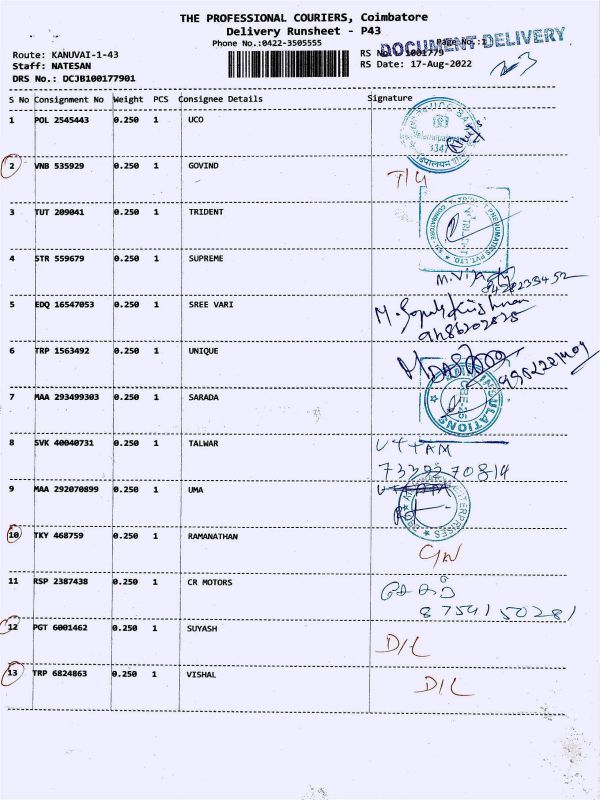 THE PROFESSIONAL COURIERS, Coimbatore
Delivery Runsheet - P43
Phone No.:0422-3505555
Page No.:1
DOCUMENT DELIVERY
Route: KANUVAI-1-43
Staff: NATESAN
DRS No.: DCJB100177901
RS Date: 17-Aug-2022
S No Consignment No Weight PCS Consignee Details Signature
1 POL 2545443 0.250 1 UCO
2 VNB 535929 0.250 1 GOVIND
3 TUT 209041 0.250 1 TRIDENT
4 STR 559679 0.250 1 SUPREME
5 EDQ 16547053 0.250 1 SREE VARI
6 TRP 1563492 0.250 1 UNIQUE
7 MAA 293499303 0.250 1 SARADA
8 SVK 40040731 0.250 1 TALWAR
UTTAM
9 MAA 292070899 0.250 1 UMA
10 TKY 468759 0.250 1 RAMANATHAN
11 RSP 2387438 0.250 1 CR MOTORS
8754150281
12 PGT 6001462 0.250 1 SUYASH
D/L
13 TRP 6824863 0.250 1 VISHAL
D/L